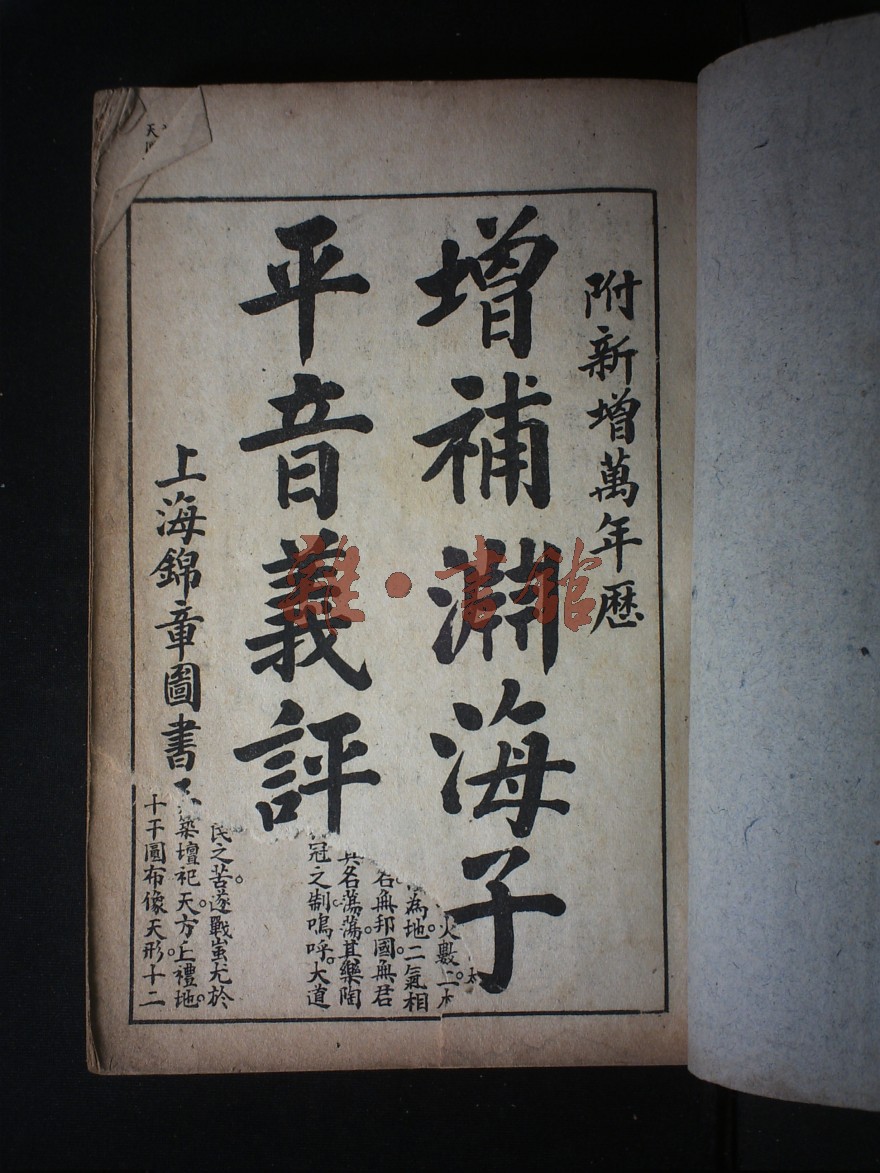 附新增萬年歷
增補淵海子
平音義評
上海錦章圖書
火數
為地。二氣相
名無邦國無君
名蕩蕩其樂陶
冠之制嗚呼。大道
民之苦。遂戰蚩尤於
築壇祀天。方丘禮地。
十干圓布像天形。十二
天
雅·書館